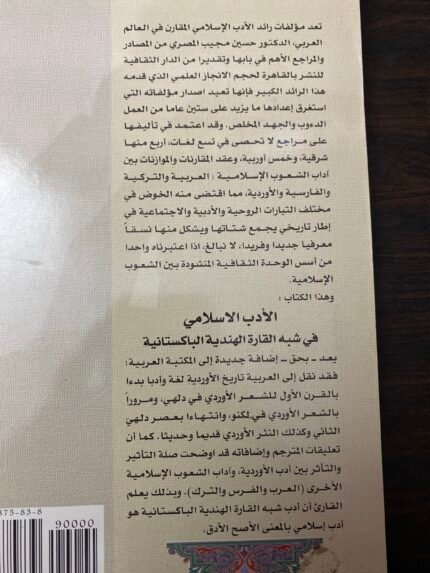 تعد مؤلفات رائد الأدب الإسلامي المقارن في العالم
العربي، الدكتور حسين مجيب المصري من المصادر
والمراجع الأهم في بابها وتقديرا من الدار الثقافية
للنشر بالقاهرة لحجم الانجاز العلمي الذي قدمه
هذا الرائد الكبير فإنها تعيد اصدار مؤلفاته التي
استغرق إعدادها ما يزيد على ستين عاما من العمل
الدءوب والجهد المخلص. وقد اعتمد في تأليفها
على مراجع لا تحصى في تسع لغات، أربع منها
شرقية، وخمس أوربية، وعقد المقارنات والموازنات بين
آداب الشعوب الإسلامية : العربية والتركية
والفارسية والأوردية، مما اقتضى منه الخوض في
مختلف التيارات الروحية والأدبية والاجتماعية في
إطار تاريخي يجمع شتاتها ويشكل منها نسقاً
معرفيا جديدا وفريدا، لا نبالغ، اذا اعتبرناه واحدا
من أسس الوحدة الثقافية المنشودة بين الشعوب
الإسلامية.
وهذا الكتاب :
الأدب الاسلامي
في شبه القارة الهندية الباكستانية
يعد ـ بحق ـ إضافة جديدة إلى المكتبة العربية؛
فقد نقل إلى العربية تاريخ الأوردية لغة وأدبا بدءا
بالقرن الأول للشعر الأوردي في دلهي، ومروراً
بالشعر الأوردي في لكنو، وانتهاءا بعصر دلهي
الثاني وكذلك النثر الأوردي قديما وحديثا. كما أن
تعليقات المترجم وإضافاته قد اوضحت صلة التأثير
والتأثر بين أدب الأوردية، وآداب الشعوب الإسلامية
الأخرى (العرب والفرس والترك). وبذلك يعلم
القارئ أن أدب شبه القارة الهندية الباكستانية هو
أدب إسلامي بالمعنى الأصح الأدق.
375-83-8
90000